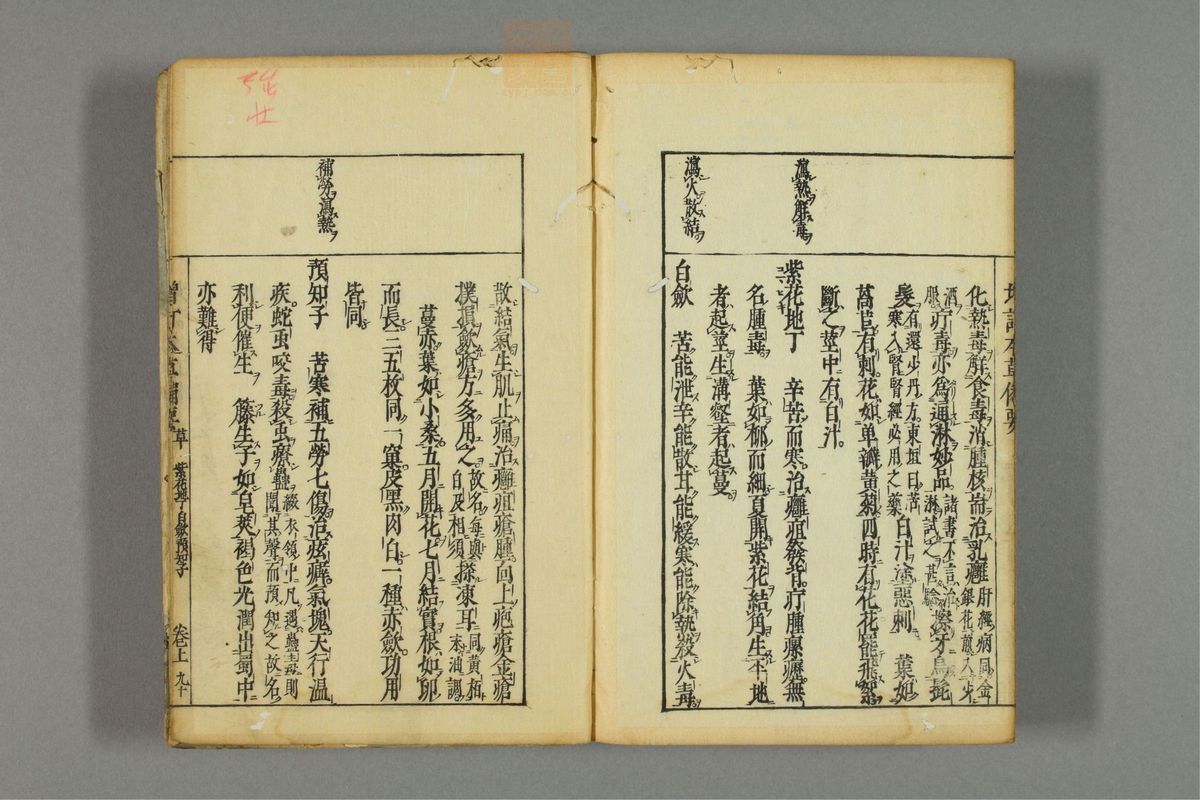 瀉熱解毒
瀉火散結
增訂本草備要
化熱毒解食毒消腫核耑治乳癰肝經病同金
銀花煎入少
酒服疔毒亦為通淋妙品諸書不言治
淋試之甚驗擦牙烏髭
髮有還少丹方東垣曰苦
寒入腎腎經必用之藥白汁塗惡刺　葉如
萵苣有刺花如单瓣黃菊四時有花花罷飛絮
斷之莖中有白汁
紫花地丁　辛苦而寒治癰疽發背疔腫瘰癧無
名腫毒　葉如柳而細夏開紫花結角生平地
者起莖生溝壑者起蔓
白歛　苦能泄辛能散甘能緩寒能除熱殺火毒
補勞瀉熱
散結氣生肌止痛治癰疽瘡腫面上疱瘡金瘡
撲損歛瘡方多用之故名每與
白及相須搽凍耳同黃栢
末油調
蔓赤葉如小桑五月開花七月結實根如卵
而長三五枚同一窠皮黑肉白一種赤歛功用
皆同
預知子　苦寒補五勞七傷治痃癖氣塊天行温
疾蛇虫咬毒殺虫療蠱綴衣領中凡遇蠱毒則
聞其聲而預知之故名
利便催生　籐生子如皂莢褐色光潤出蜀中
亦難得
增訂本草備要　草　紫花地丁白歛預知子　卷上　九十
强
壮